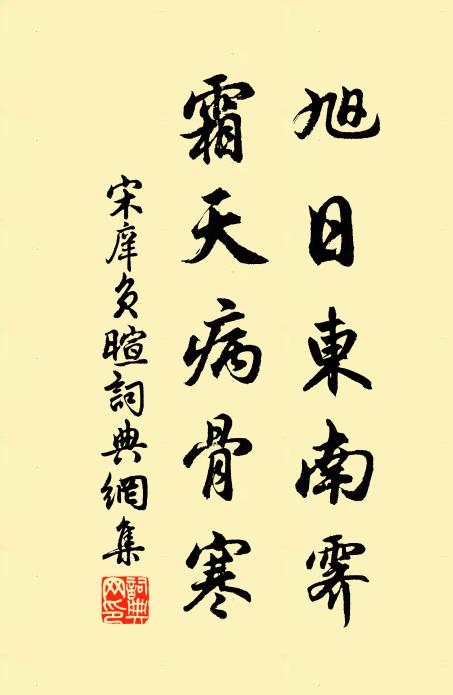 旭日東南霽
霜天病骨寒
宋庠負暄詞典網集
詞典網印